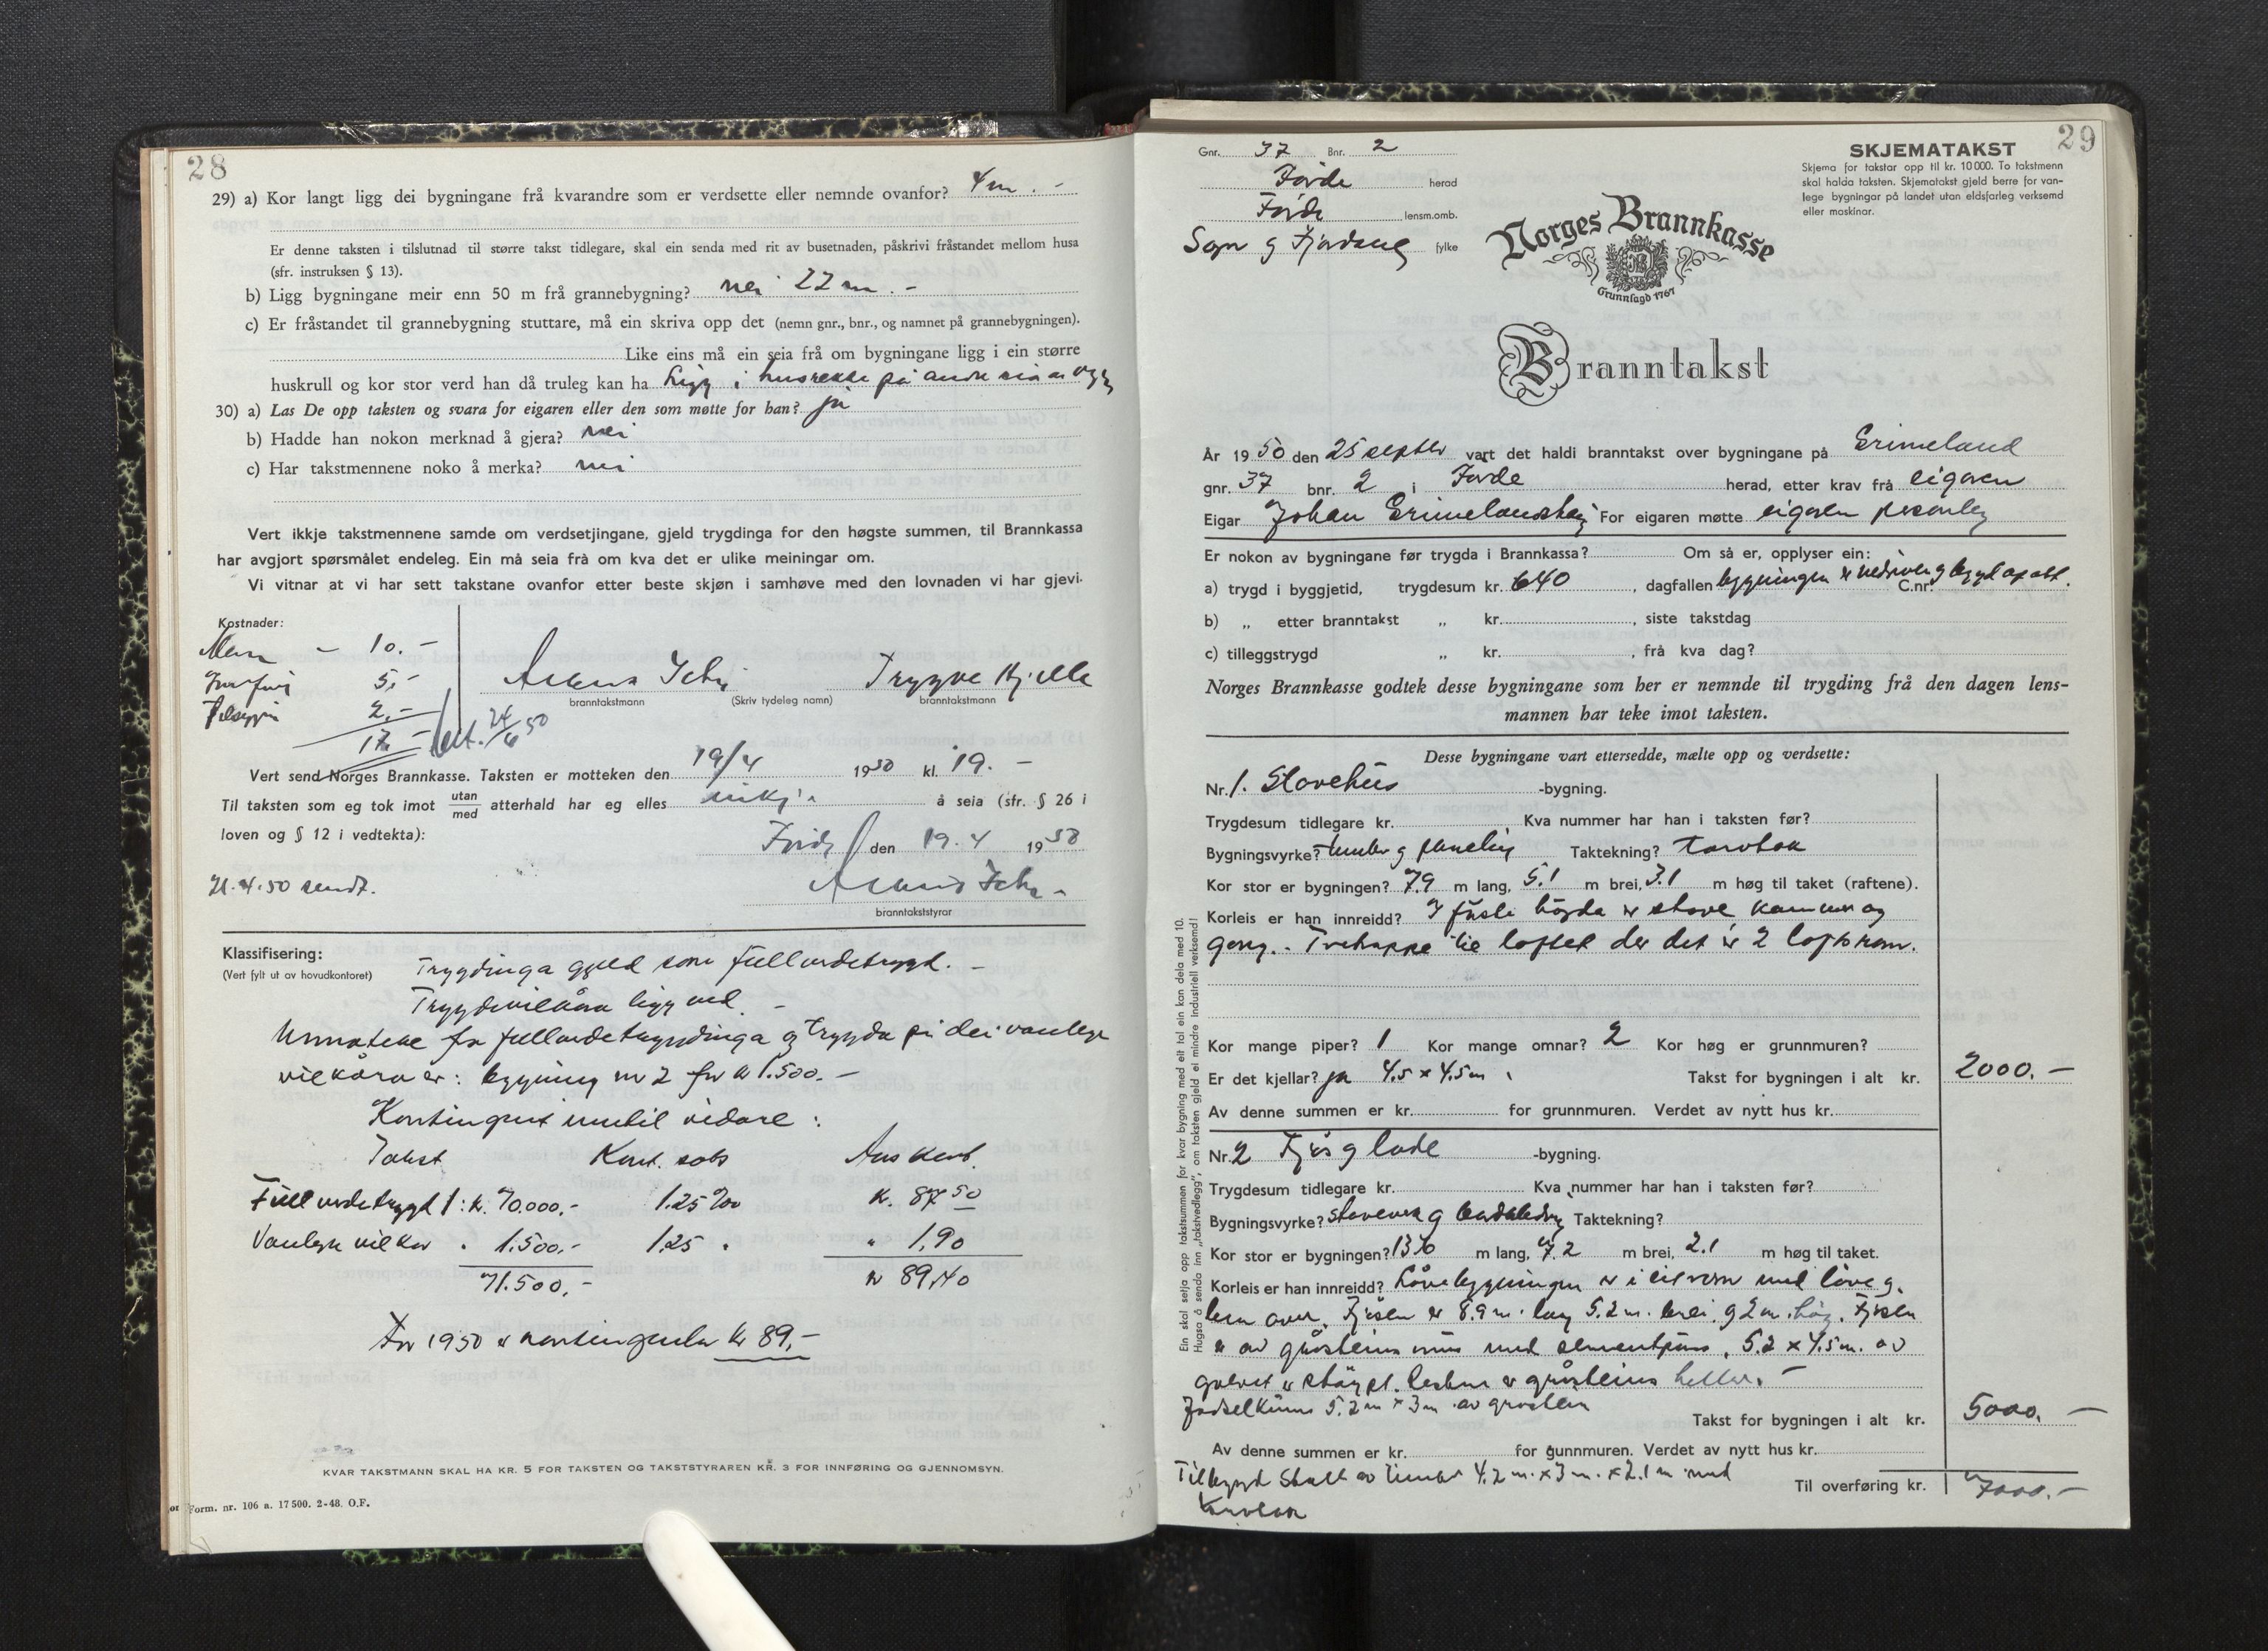 28
29) a) Kor langt ligg dei bygningane frå kvarandre som er verdsette eller nemnde ovanfor? 4 m. -
Er denne taksten i tilslutnad til større takst tidlegare, skal ein senda med rit av busetnaden, påskrivi fråstandet mellom husa
(sfr. instruksen § 13).
b) Ligg bygningane meir enn 50 m frå grannebygning? nei 22 m. -
c) Er fråstandet til grannebygning stuttare, må ein skriva opp det (nemn gnr., bnr., og namnet på grannebygningen).
Like eins må ein seia frå om bygningane ligg i ein større
huskrull og kor stor verd han då truleg kan ha Ligg i husrekke på andre sida av
30) a) Las De opp taksten og svara for eigaren eller den som møtte for han? ja
b) Hadde han nokon merknad å gjera? nei
c) Har takstmennene noko å merka? nei
Vert ikkje takstmennene samde om verdsetjingane, gjeld trygdinga for den høgste summen, til Brannkassa
har avgjort spørsmålet endeleg. Ein må seia frå om kva det er ulike meiningar om.
Vi vitnar at vi har sett takstane ovanfor etter beste skjøn i samhøve med den lovnaden vi har gjevi.
Kostnader:
Menn - 10.-
Innføring 5,-
2,-
17,-
bet. 24/6 50
Trygve Hjelle
branntakstmann (Skriv tydeleg namn) branntakstmann
Vert send Norges Brannkasse. Taksten er motteken den 19/4 1950 kl. 19. -
Til taksten som eg tok imot utan/med atterhald har eg elles inkje å seia (sfr. § 26 i
loven og § 12 i vedtekta):
Førde den 19.4 1950
21.4.50 sendt.
branntakststyrar
Klassifisering:
(Vert fylt ut av hovudkontoret)
Trygdinga gjeld som fullverdetrygd. -
Trygdevilkåra ligg ved. -
Unnateke fra fullverdetrygdinga og trygda på dei vanlege
vilkåra er: bygning nr 2 for kr 1.500. -
Kontingent inntil vidare:
Takst Kont. sats Års kont.
Fullverdetrygd: kr. 70.000,- 1.25 ‰ kr. 87 50
Vanlege vilkår " 1.500,- 1,25 " " 1,90
71.500,- kr 89,40
For 1950 er kontingenten kr 89,-
KVAR TAKSTMANN SKAL HA KR. 5 FOR TAKSTEN OG TAKSTSTYRAREN KR. 3 FOR INNFØRING OG GJENNOMSYN.
Form. nr. 106 a. 17 500. 2-48. O.F.
29
Gnr. 37 Bnr. 2
Førde herad
Førde lensm.omb.
Sogn og Fjordane fylke
SKJEMATAKST
Skjema for takstar opp til kr. 10 000. To takstmenn
skal halda taksten. Skjematakst gjeld berre for van-
lege bygningar på landet utan eldsfarleg verksemd
eller maskinar.
Norges Brannkasse
Grunnlagd 1767
Branntakst
År 1950 den 25 septbr vart det haldi branntakst over bygningane på Grimeland
gnr. 37 bnr. 2 i Førde herad, etter krav frå eigaren
Eigar Johan Grimelandshaug For eigaren møtte eigaren personleg
Er nokon av bygningane før trygda i Brannkassa? Om så er, opplyser ein:
a) trygd i byggjetid, trygdesum kr. 640, dagfallen bygningen er nedriven og bygd opp att. C.nr.
b) „ etter branntakst „ kr. , siste takstdag
c) tilleggstrygd „ kr. , frå kva dag?
Norges Brannkasse godtek desse bygningane som her er nemnde til trygding frå den dagen lens-
mannen har teke imot taksten.
Desse bygningane vart ettersedde, mælte opp og verdsette:
Nr. 1. Stovehus -bygning.
Trygdesum tidlegare kr. Kva nummer har han i taksten før?
Bygningsvyrke? timber og paneling Taktekning? torvtak
Kor stor er bygningen? 7.9 m lang, 5.1 m brei, 3.1 m høg til taket (raftene).
Korleis er han innreidd? I fyrste høgda er stove kammer og
gang. Tretrappe til loftet der det er 2 loftsrom.
Kor mange piper? 1 Kor mange omnar? 2 Kor høg er grunnmuren?
Er det kjellar? ja 4.5 x 4.5 m. Takst for bygningen i alt kr. 2000. -
Av denne summen er kr. for grunnmuren. Verdet av nytt hus kr.
Nr. 2 Fjøs og løde -bygning.
Trygdesum tidlegare kr. Kva nummer har han i taksten før?
Bygningsvyrke? staveverk og bordkledning Taktekning?
Kor stor er bygningen? 13.6 m lang, 7.2 m brei, 2.1 m høg til taket.
Korleis er han innreidd? Lødebygningen er i eit rom med løve og
lem over. Fjøsen er 8.9 m. lang 5.2 m. brei og 2 m. høg. Fjøsen
er av gråsteins mur med sementfuging. 5.2 x 4.5 m. av
golvet er støypt. Resten er gråsteins heller. -
Gjødselkum 5.2 m x 3 m av gråstein
Takst for bygningen i alt kr. 5000. -
Av denne summen er kr. for gunnmuren. Verdet av nytt hus kr.
Tilbygd stall av timber 4.2 m. x 3 m. x 2.1 m med
torvtak
Til overføring kr. 7000.-
Ein skal setja opp takstsummen for kvar bygning med eit tal ein kan dela med 10.
Hugsa å senda inn „takstvedlegg”, om taksten gjeld ei mindre industriell verksemd!